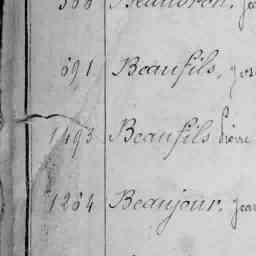 Beaudron.
691 Beaufils,
1493 Beaufils Pierre
1264 Beaujour. Jean